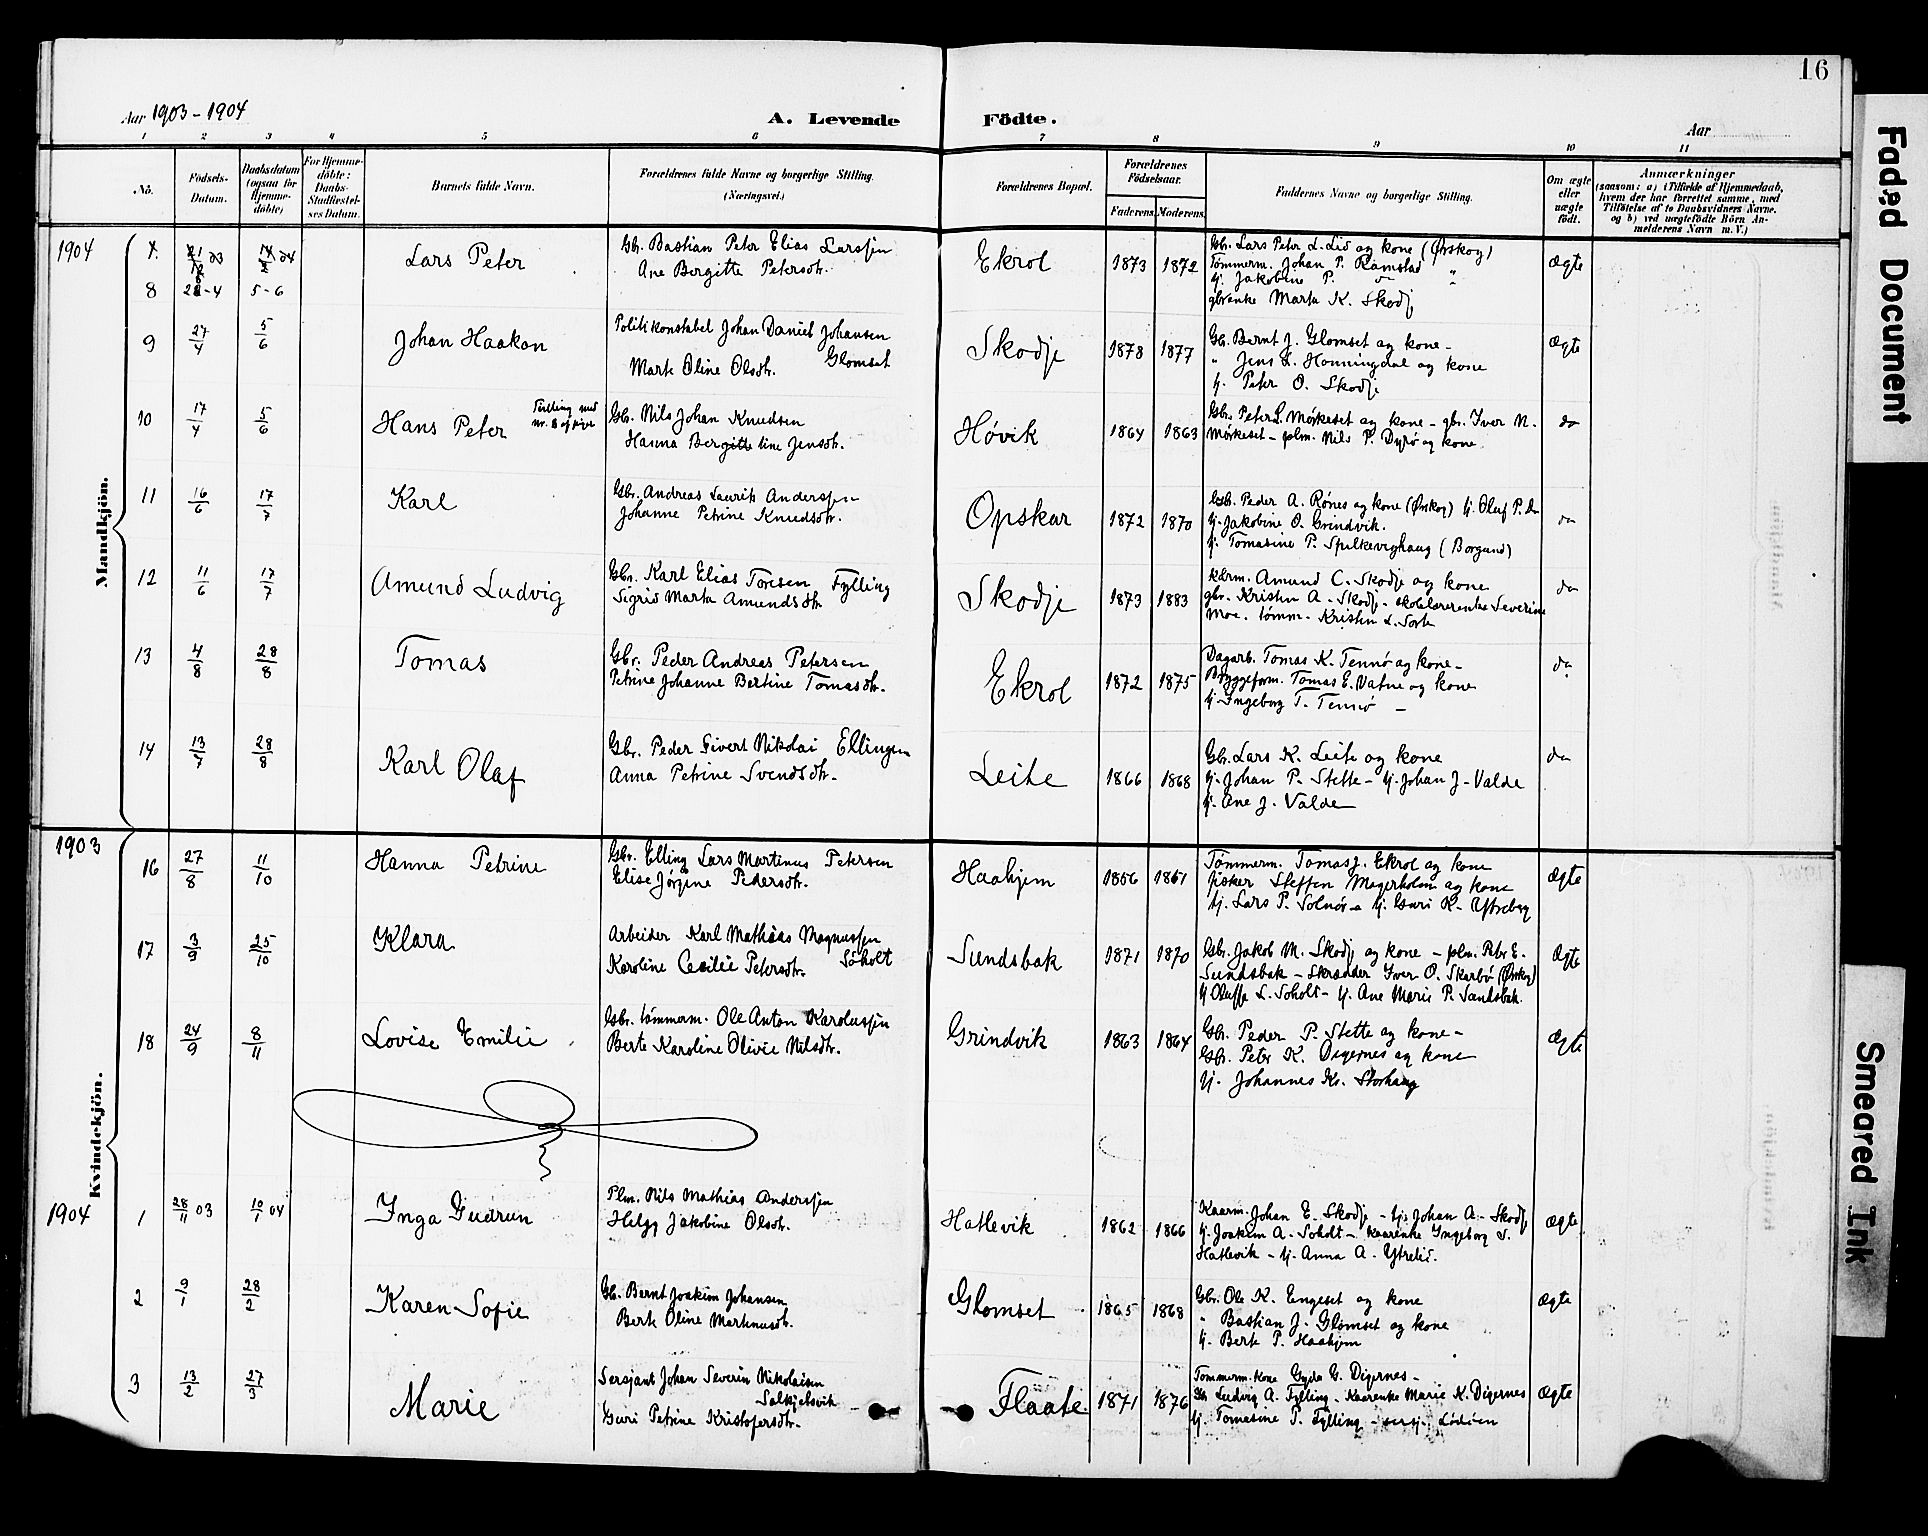 16
Aar 1903 - 1904
A. Levende Födte.
Aar
1 2 3 4 5 6 7 8 9 10 11
No.
Födsels-Datum.
Daabsdatum (ogsaa for Hjemme-döbte)
For Hjemme-döbte: Daabs-Stadfæstel-ses Datum.
Barnets fulde Navn.
Forældrenes fulde Navne og borgerlige Stilling. (Næringsvei.)
Forældrenes Bopæl.
Forældrenes Födselsaar.
Faderens Moderens
Faddernes Navne og borgerlige Stilling.
Om ægte eller uægte födt.
Anmærkninger
(saasom: a) i Tilfælde af Hjemmedaab, hvem der har forrettet samme, med Tilföielse af to Daabsvidners Navne. og b) ved uægtefödte Börn An-melderens Navn m. V.)
Mandkjön.
1904
8 5-6 Lars Peter
Gbr. Bastian Peter Elias Larssen
Ane Bergitte Petersdtr.
Ekrol 1873 1872
Gbr. Lars Peter L. Lid og kone (Ørskog)
Tømmerm. Johan P. Ramstad
tj. Jakobine P.
gbrenke Marta K. Skodj
Ægte
9 27/4 5/6 Johan Haakon
Politikonstabel Johan Daniel Johansen Glomset
Marte Oline Olsdtr.
Skodje 1878 1877
Gbr. Bernt J. Glomset og kone -
" Jens L. Honningdal og kone
tj. Peter O. Skodje
Ægte
10 17/4 5/6 Hans Peter
Tvilling med nr. 8 af piger
Gbr. Nils Johan Knudsen
Hanna Bergitte line Jensdtr.
Høvik 1864 1863
Gbr. Peter L. Mørkeset og kone - gbr. Iver N.
Mørkeset - plm. Nils P. Dyrø og kone
do
11 16/6 17/7 Karl
Gbr. Andreas Laurits Anderssen
Johanne Petrine Knudsdtr.
Opskar 1872 1870
Gbr. Peder A. Rønes og kone (Ørskog) tj. Oluf P. do
tj. Jakobine O. Grindvik.
tj. Tomasine P. Spilkevighaug (Borgund)
do
12 11/6 17/7 Amund Ludvig
Gbr. Karl Elias Toresen Fylling
Sigrid Marta Amundsdtr
Skodje 1873 1883
Kårm. Amund C. Skodje og kone
gbr. Kristen A. Skodje - skolelærerenke Severine
Moe. tømm. Kristen L. Sorte
do
13 4/8 28/8 Tomas
Gbr. Peder Andreas Petersen
Petrine Johanne Bertine Tomasdtr.
Ekrol 1872 1875
Dagarb. Tomas K. Tennø og kone -
Byggeform. Tomas E. Vatne og kone
tj. Ingeborg T. Tennø -
do
14 13/7 28/8 Karl Olaf
Gbr. Peder Sivert Nikolai Ellingsen
Anna Petrine Svendsdtr.
Leite 1866 1868
Gbr. Lars K. Leite og kone
tj. Johan P. Stette - tj. Johan J. Valde
tj. Ane J. Valde
do
Kvindekjön.
1903
16 27/8 11/10 Hanna Petrine
Gbr. Elling Lars Martinus Petersen
Elise Jørgine Pedersdtr.
Haahjem 1856 1861
Tømmerm. Tomas J. Ekrol og kone
fisker Steffen Magerholm og kone
tj. Lars P. Solnør - tj. Guri K. Ytreberg
Ægte
17 3/9 25/10 Klara
Arbeider Karl Mathias Magnussen Søholt
Karoline Cecilie Petersdtr.
Sundsbak 1871 1870
Gbr. Jakob M. Skodje og kone - plm. Peter E.
Sundsbak - Skrædder Iver O. Skarbø (Ørskog)
tj Oluffa L. Soholt - tj. Ane Marie P. Sundsbak.
Ægte
18 24/9 8/11 Lovise Emilie
Gbr. tømmerm. Ole Anton Karolussen
Berte Karoline Olivie Nilsdtr.
Grindvik 1863 1864
Gbr. Peder P. Stette og kone -
Gbr. Peter K. Digernes og kone
tj. Johannes Kr. Storhaug
Ægte
1904
1 28/11 03 10/1 04 Inga Gudrun
Plm. Nils Mathias Anderssen
Helga Jakobine Olsdtr.
Hatlevik 1862 1866
Kaarm. Johan E. Skodje - tj. Johan A. Skodje
tj. Joakim A. Soholt - kaarenke Ingeborg S.
Hatlevik - tj. Anna A. Ytrelid.
Ægte
2 9/1 28/2 Karen Sofie
Gbr. Bernt Joakim Johansen
Berte Oline Martinusdtr.
Glomset 1865 1868
Gbr. Ole K. Engeset og kone
" Bastian J. Glomset og kone
tj. Berte P. Haahjem
Ægte
3 13/2 27/3 Marie
Sersjant Johan Severin Nikolaisen Solkjelsvik
Guri Petrine Kristofersdtr.
Flaate 1871 1876
Tommerm. kone Gyda G. Digernes -
Gbr Ludvig A. Fylling - Kaarenke Marie K. Digernes
tj. Tomasine P. Fylling - sersj. Lødøen
Ægte
Faded Document
Smeared Ink